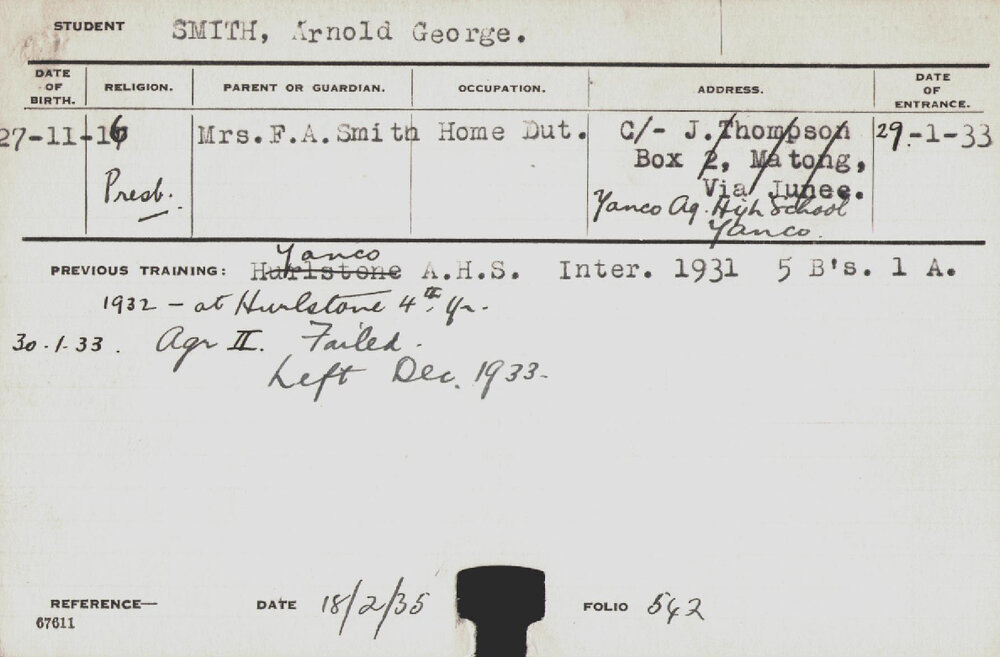 STUDENT SMITH, Arnold George.
DATE OF BIRTH. RELIGION. PARENT OR GUARDIAN. OCCUPATION. ADDRESS. DATE OF ENTRANCE.
27-11-16 Mrs.F.A.Smith Home Dut. C/- J.Thompson 29.-1-33
Box 2, Matong,
Presb. Via Junee.
Yanco Ag. High School
Yanco.
Yanco
PREVIOUS TRAINING: Hurlstone A.H.S. Inter. 1931 5 B's. 1 A.
1932 - at Hurlstone 4th yr.
30.1.33. Agr II. Failed.
Left Dec. 1933.
REFERENCE— DATE 18/2/35 FOLIO 542
67611